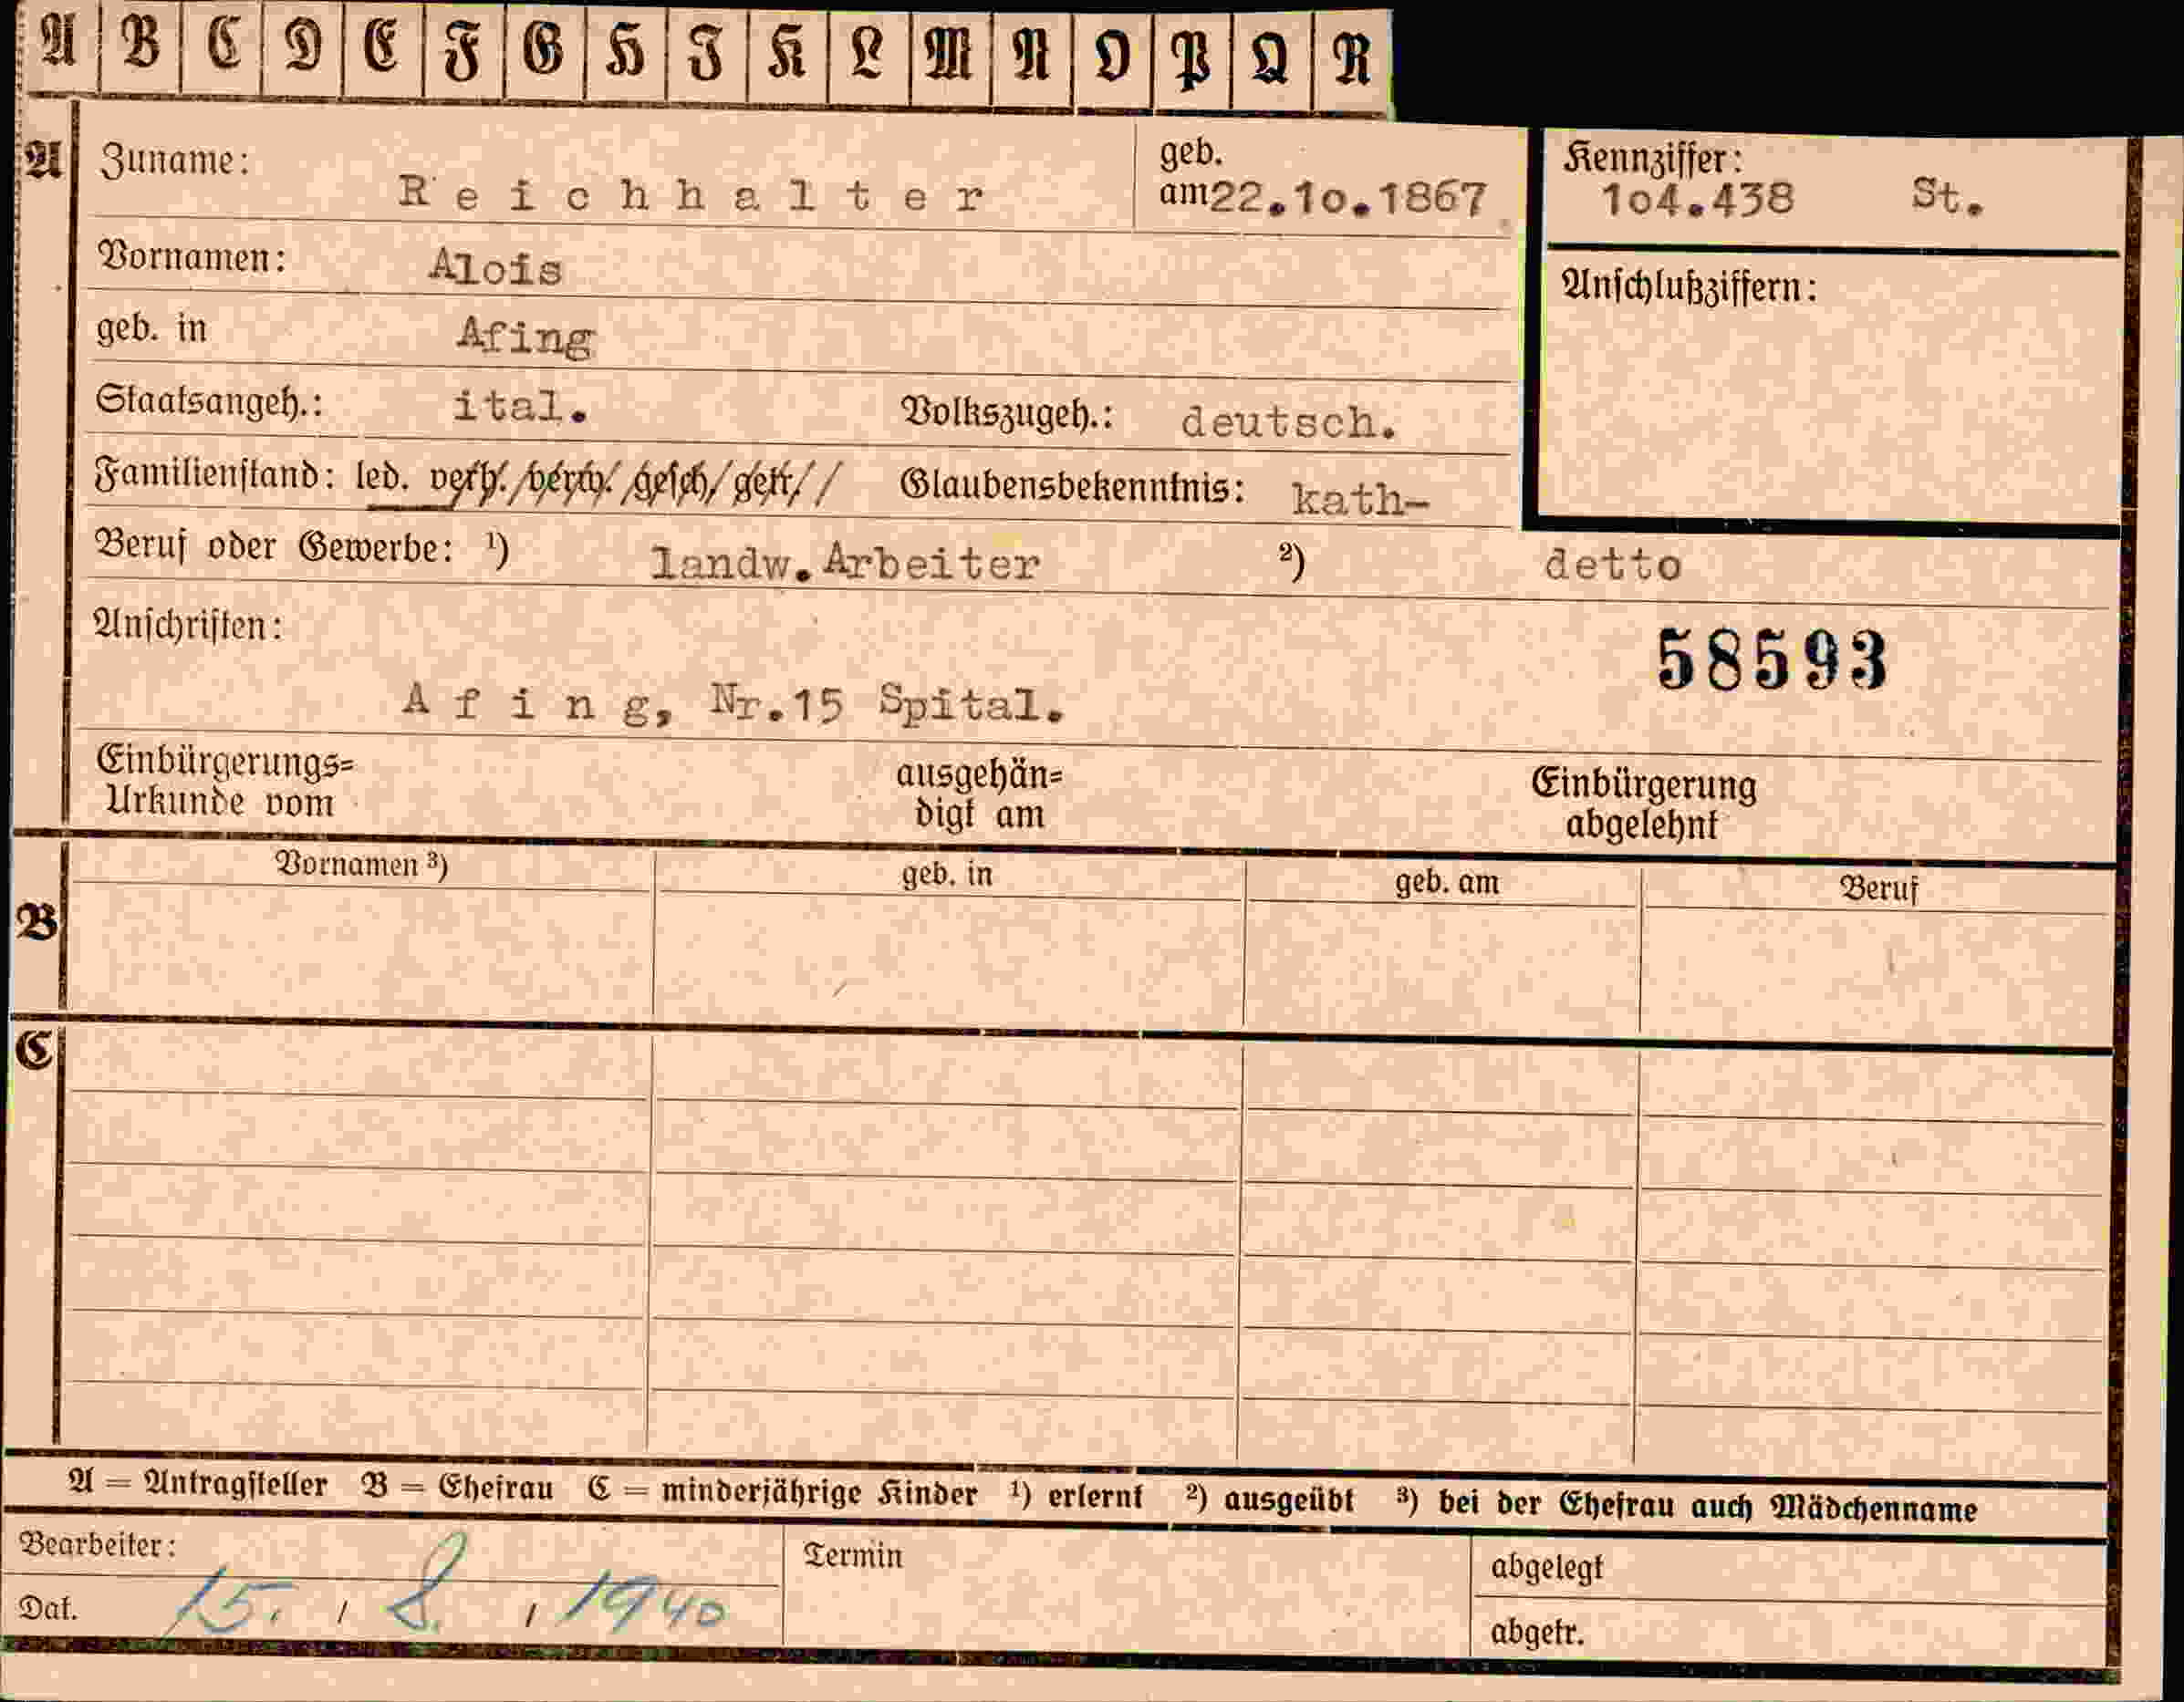 A B C D E F G H I K L M N O P Q R
A Zuname: Reichhalter geb. am 22.10.1867 Kennziffer: 104.438 St.
Vornamen: Alois Anschlußziffern:
geb. in Afing
Staatsangeh.: ital. Volkszugeh.: deutsch.
Familienstand: led. verh. verw. gesch. getr. Glaubensbekenntnis: kath-
Beruf oder Gewerbe: ¹) landw. Arbeiter ²) detto
Anschriften: 58593
Afing, Nr.15 Spital.
Einbürgerungs= ausgehän= Einbürgerung
Urkunde vom digt am abgelehnt
B Vornamen ³) geb. in geb. am Beruf
C
A = Antragsteller B = Ehefrau C = minderjährige Kinder ¹) erlernt ²) ausgeübt ³) bei der Ehefrau auch Mädchenname
Bearbeiter: Termin abgelegt
Dat. 15. / 8. / 1940 abgetr.